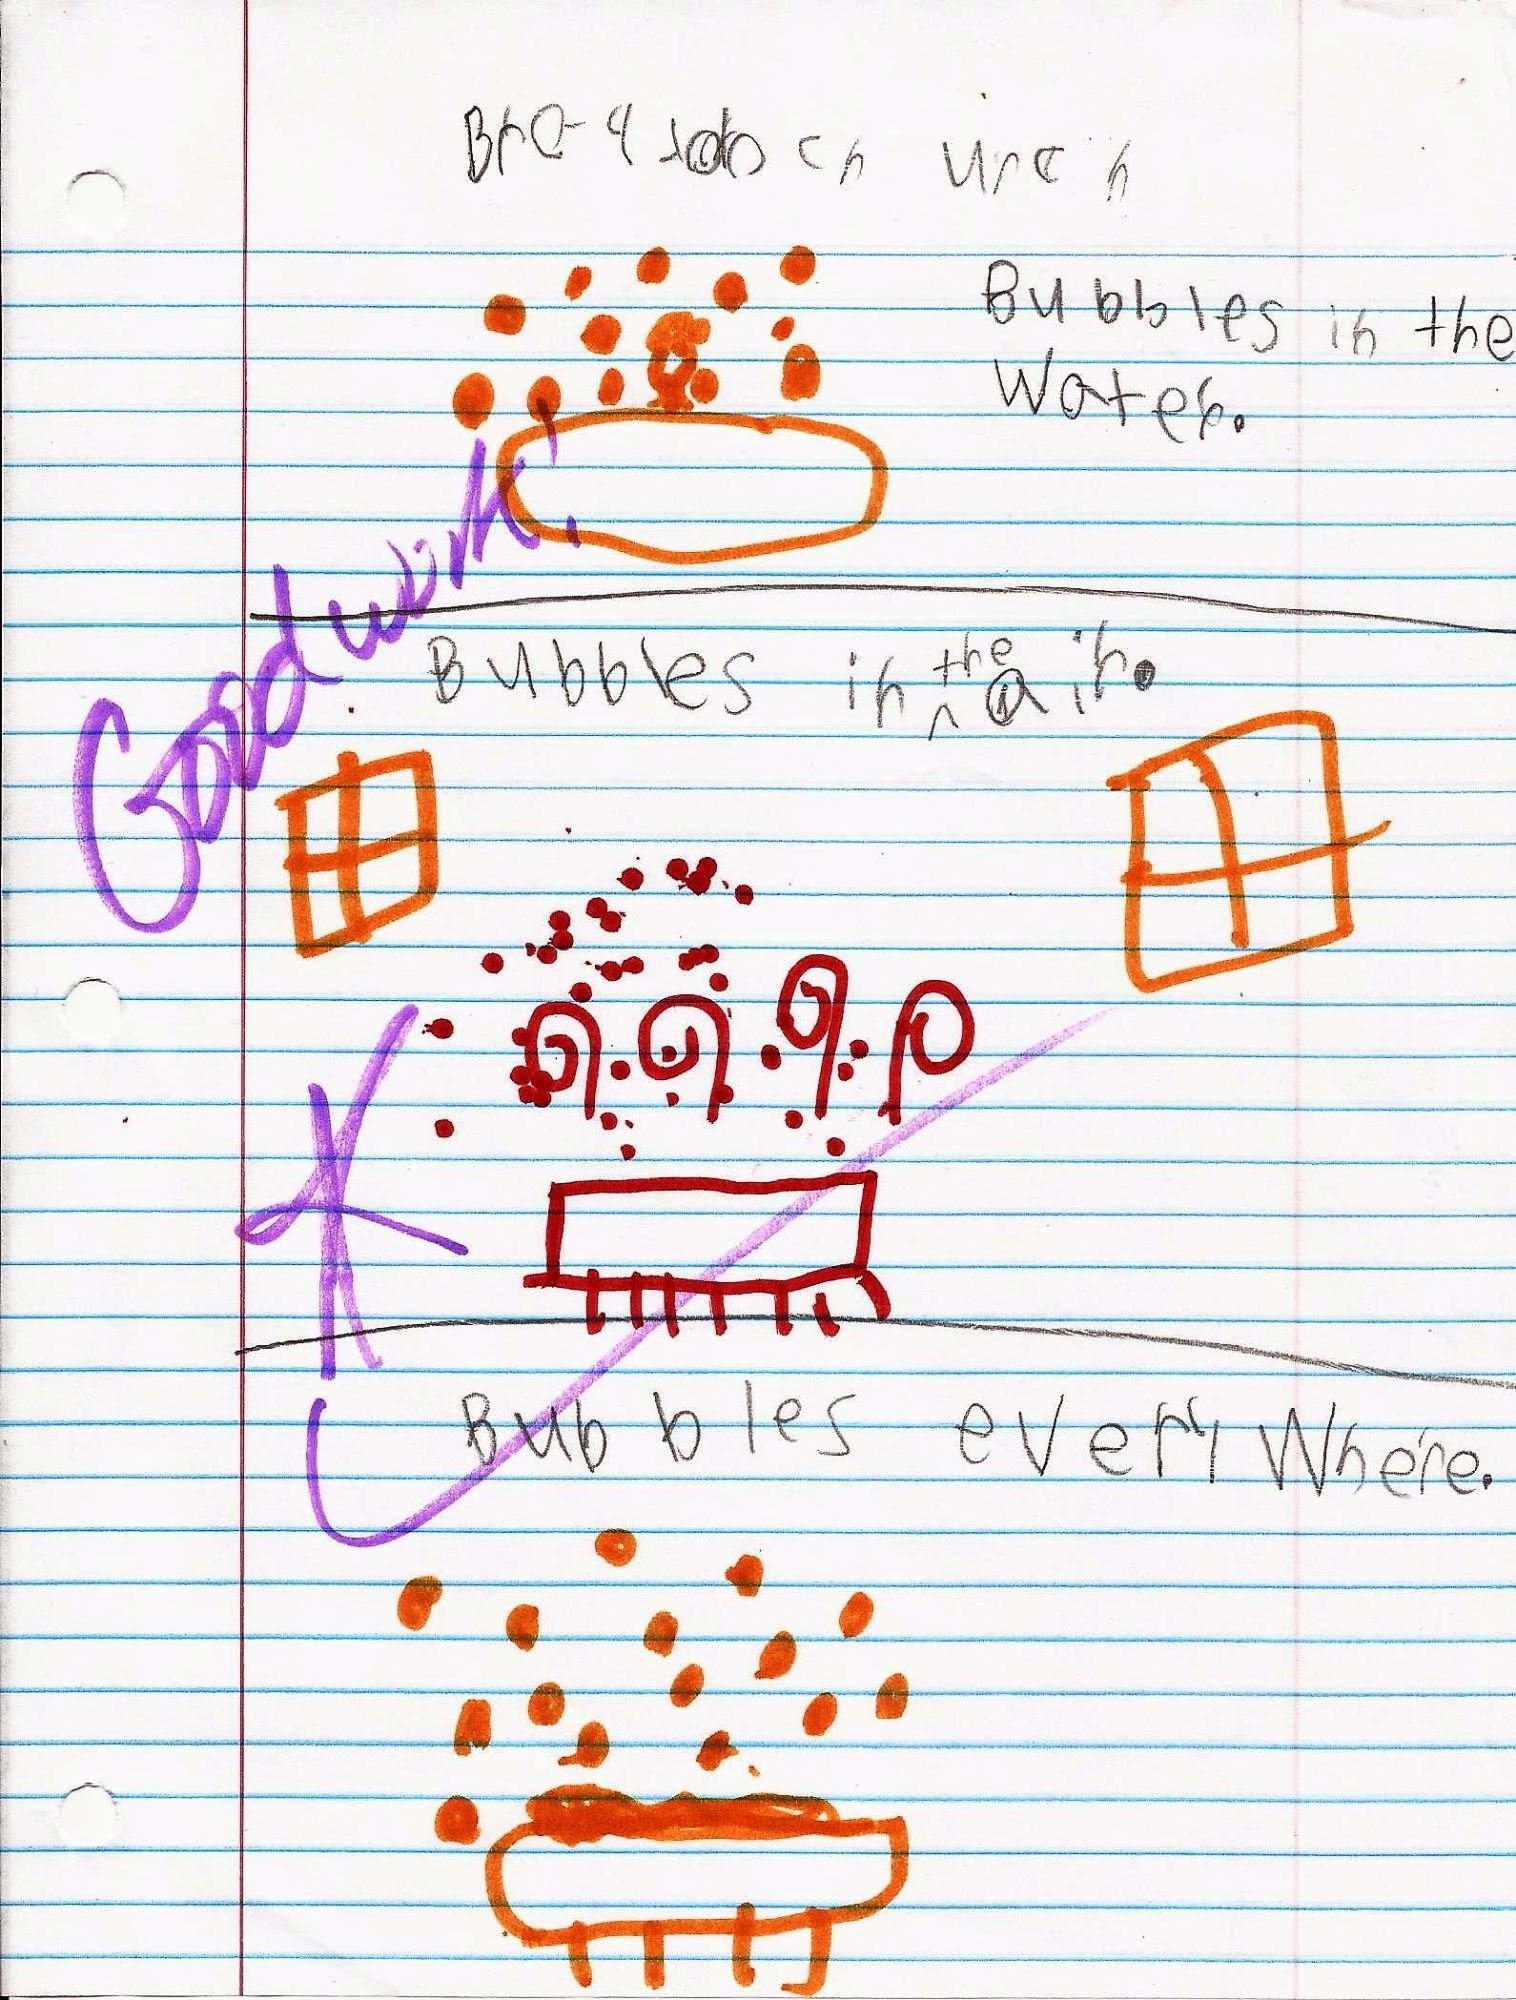 Bubbles in the
Water.
Good work!
Bubbles in the air.
Bubbles every Where.